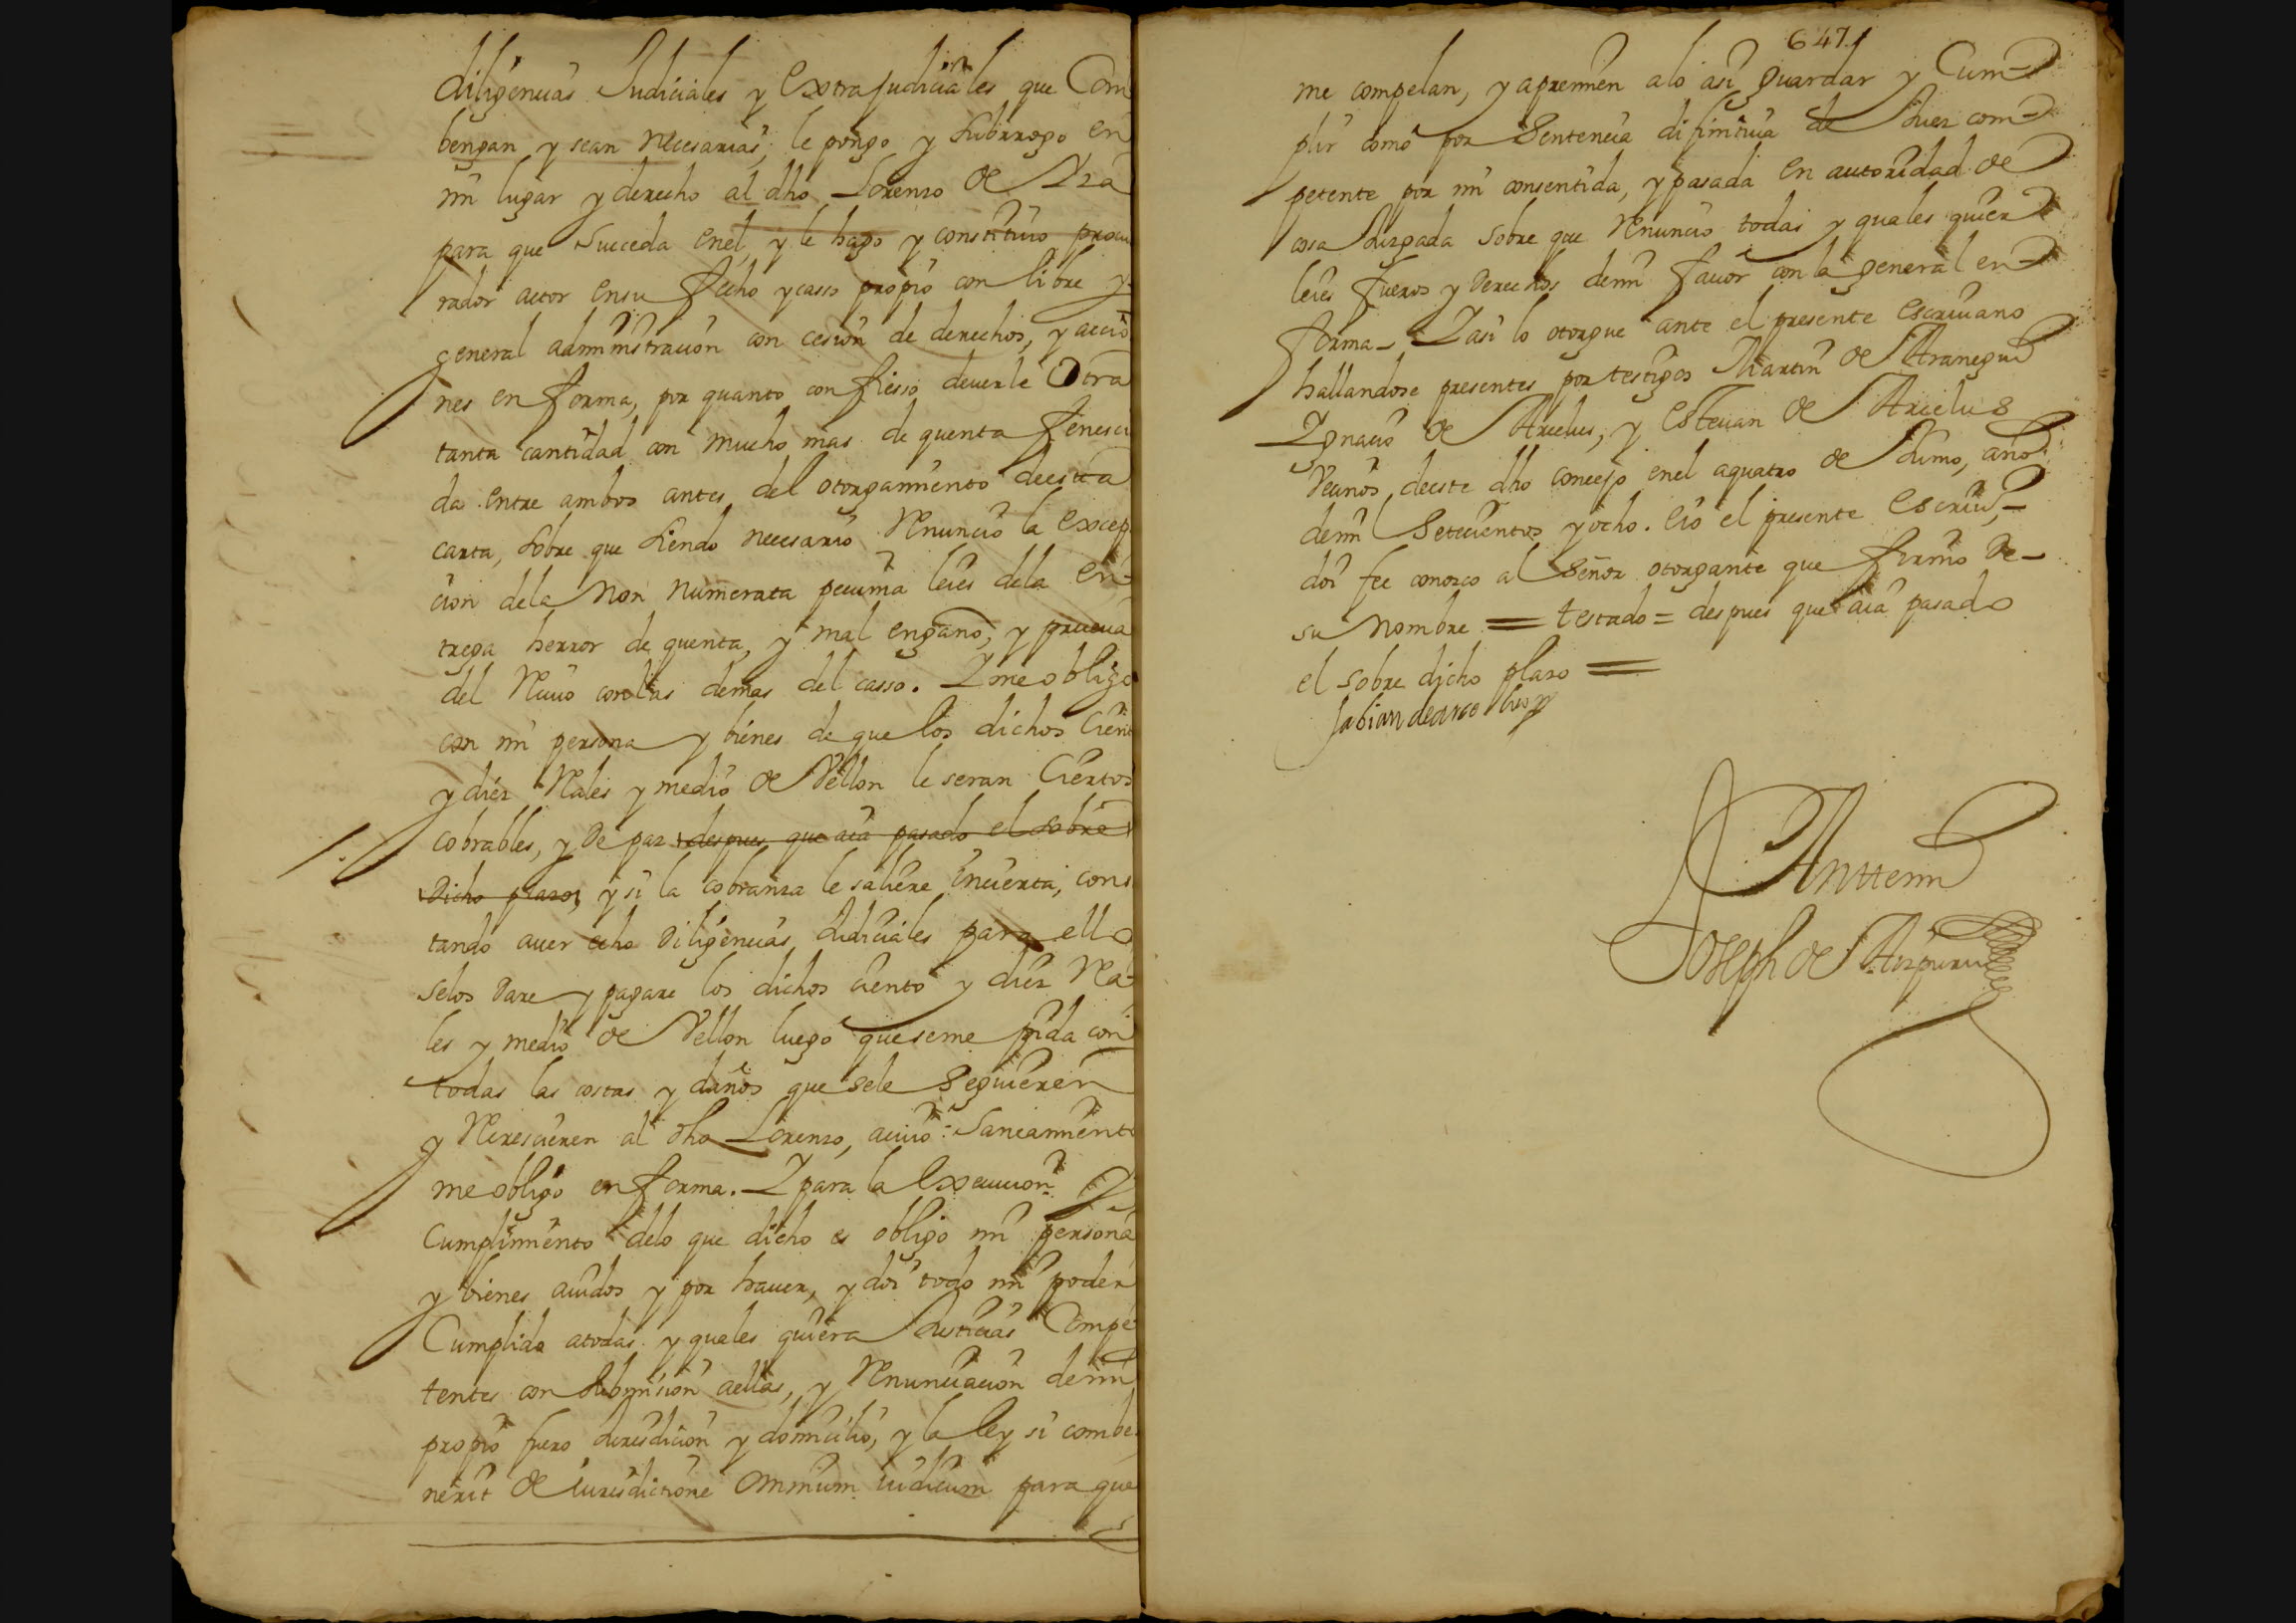 diligencias Judiciales y extrajudiciales que Com
bengan y sean necesarias, le pongo y subrrogo en
mi lugar y derecho al dho Lorenzo de
para que succeda enel, y le hago y constituio procu
rador actor ensu fecho y casso propio con libre y
general administracion con cesion de derechos, y accio
nes en forma, por quanto confiesso deuerle otra
tanta cantidad con mucho mas de quenta fenesci
da entre ambos antes del otorgamiento deesta
carta, sobre que siendo necesario Renuncio la excep
cion dela non numerata pecunia leies dela en-
trega herror de quenta, y mal engano, y prueua
del Reciuo con las demas del casso. Y me obligo
con mi persona y bienes de que los dichos Cient
y diez Rales y medio de Vellon le seran Ciertos
cobrables, y de paz despues que aia pasado el sobre
dicho plazo, y si la cobranza le saliere incierta, cons
tando auer echo diligencias Judiciales para ello
selos dare y pagare los dichos ciento y diez Rea
les y medio de Vellon luego queseme pida con
todas las costas y daños que sele seguieren
y Recrescieren al dho Lorenzo, acuio Saneamiento
me obligo en forma. Y para la execucion y
Cumplimiento delo que dicho es obligo mi persona
y bienes auidos y por hauer, y doi todo mi poder
Cumplido atodas y quales quiera Justicias Compe
tentes con submision aellas, y Renunciacion demi
propio fuero Jurisdicion y domicilio, y la ley si conbe
nerit de iurisdictione omnium iudicum para que
647
me compelan, y apremien alo asi guardar y Cum-
plir como por Sentencia difinitiua de Juez com-
petente por mi consentida, y pasada en autoridad de
cosa Juzgada sobre que Renuncio todas y quales quier
leies fueros y derechos demi fauor con la general en
forma- Y asi lo otorgue ante el presente escriuano
hallandose presentes por testigos Martin de Aranegui
Ygnacio de Arcelus, y Esteuan de Arcelus
Vecinos deeste dho concejo enel aquatro de Junio, año
demil Setecientos y ocho. Eio el presente Escriuo-
doi fee conozco al Señor otorgante que firmo de-
su nombre = testado = despues que aia pasado
el sobre dicho plazo =
fabian de arce
Anttemi
Joseph de Aizpuru